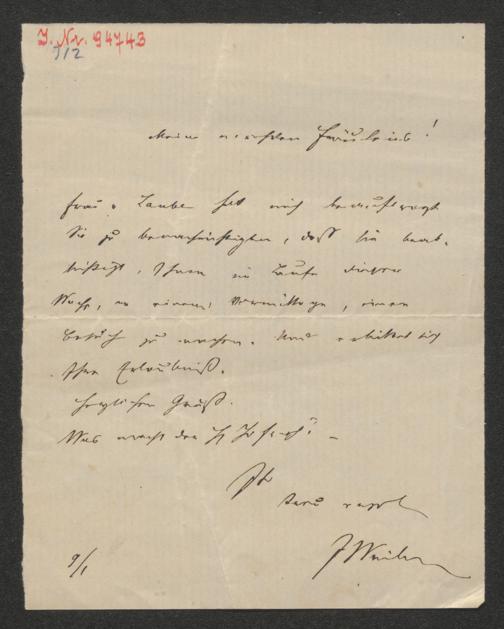 I. Nr. 94743
512
Mein verehrtes Fräulein!
Frau v. Laube hat mich beauftragt
Sie zu benachrichtigen, daß sie beab-
sichtigt, Ihnen im Laufe dieser
Woche, an einem Vormittage, einen
Besuch zu machen. Und erbittet sich
Ihre Erlaubniß.
Herzlichen Gruß.
Was macht der
Ihr
J Weilen
9/1